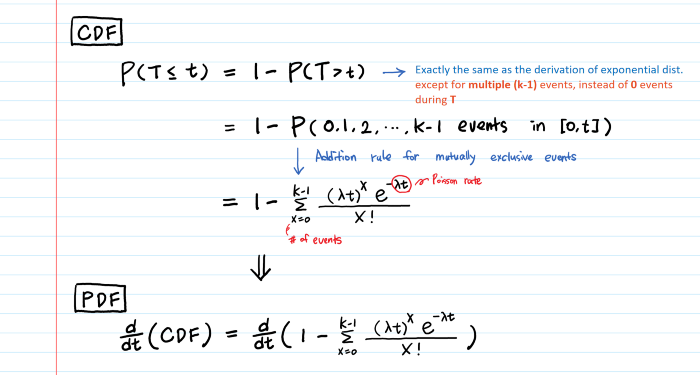 CDF
P(T ≤ t) = 1 - P(T > t) → Exactly the same as the derivation of exponential dist.
except for multiple (k-1) events, instead of 0 events
during T
= 1 - P(0, 1, 2, ..., k-1 events in [0, t])
↓ Addition rule for mutually exclusive events
= 1 - Σ_{x=0}^{k-1} (λt)^x e^{-λt} / x! Poisson rate
# of events
⇓
PDF
d/dt (CDF) = d/dt (1 - Σ_{x=0}^{k-1} (λt)^x e^{-λt} / x!)